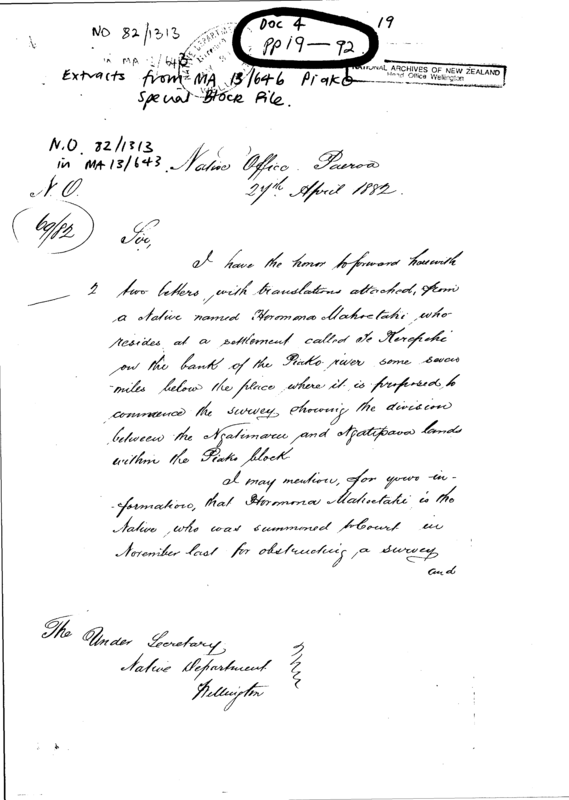 NO 82/1313
Doc 4
pp 19 — 92
19
in MA 13/643
NATIONAL ARCHIVES OF NEW ZEALAND
Head Office Wellington
Extracts from MA 13/646 Piako
Special Block File.
N.O. 82/1313
in MA 13/643
Native Office Paeroa
27th April 1882.
N.O.
69/82
Sir,
I have the honor to forward herewith
2 two letters, with translations attached, from
a Native named Horomona Mahoetahi who
resides at a settlement called Te Kerepehi
on the bank of the Piako river some seven
miles below the place where it is proposed to
commence the survey showing the division
between the Ngatimaru and Ngatipaoa lands
within the Piako block
I may mention, for your in-
-formation, that Horomona Mahoetahi is the
Native who was summoned to Court in
November last for obstructing a survey
and
The Under Secretary
Native Department
Wellington